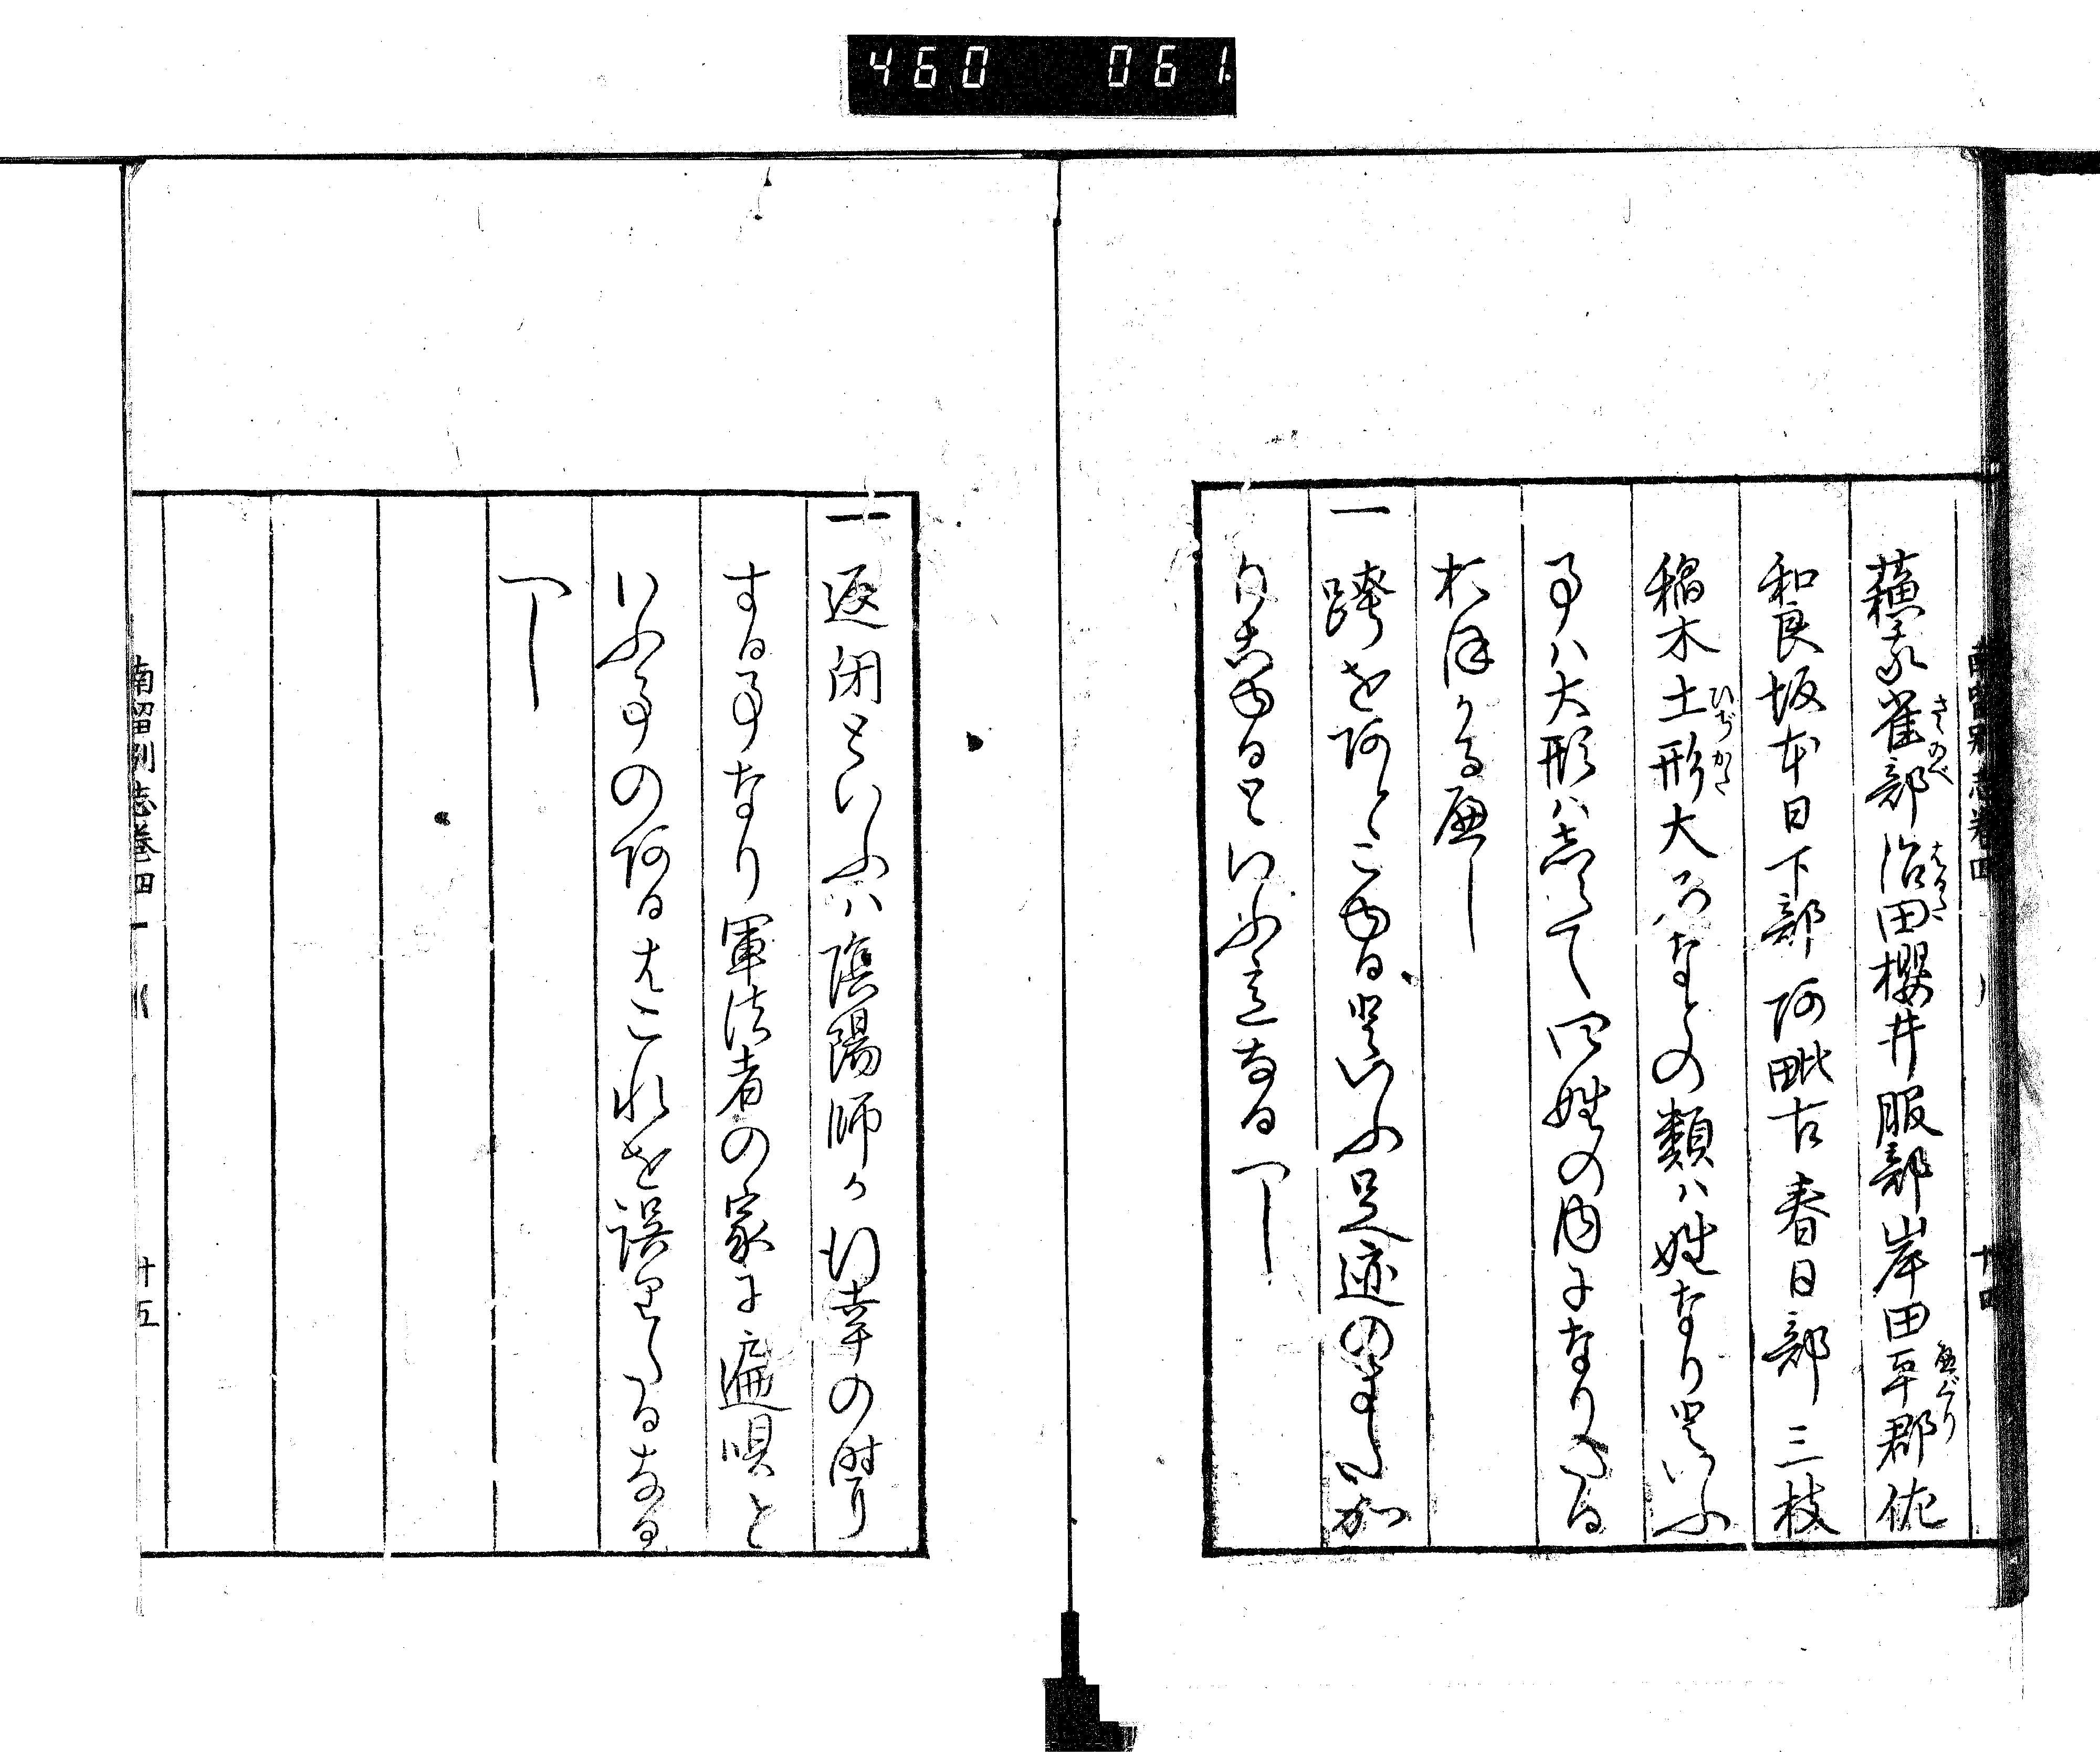 460 061
蘓我雀部治田櫻井服部岸田平群佐
さゝのべ
はるた
へぐり
和良坂本日下部阿毗古春日部三枝
稲木土形大石なとの類ハ姓なりといふ
ひぢかた
事ハ大形ハしらて只姓の内になりたる
おほかる歟
一 蹲をあとこゆるといふ足迹の
りこゆるといふ心なるへし
一 返閇といふハ陰陽師か行幸の時
する事なり軍法者の家に遍唄と
いふ事のあるはこれを誤りたるなる
へし
南留別志巻四
十四
南留別志巻四
十五